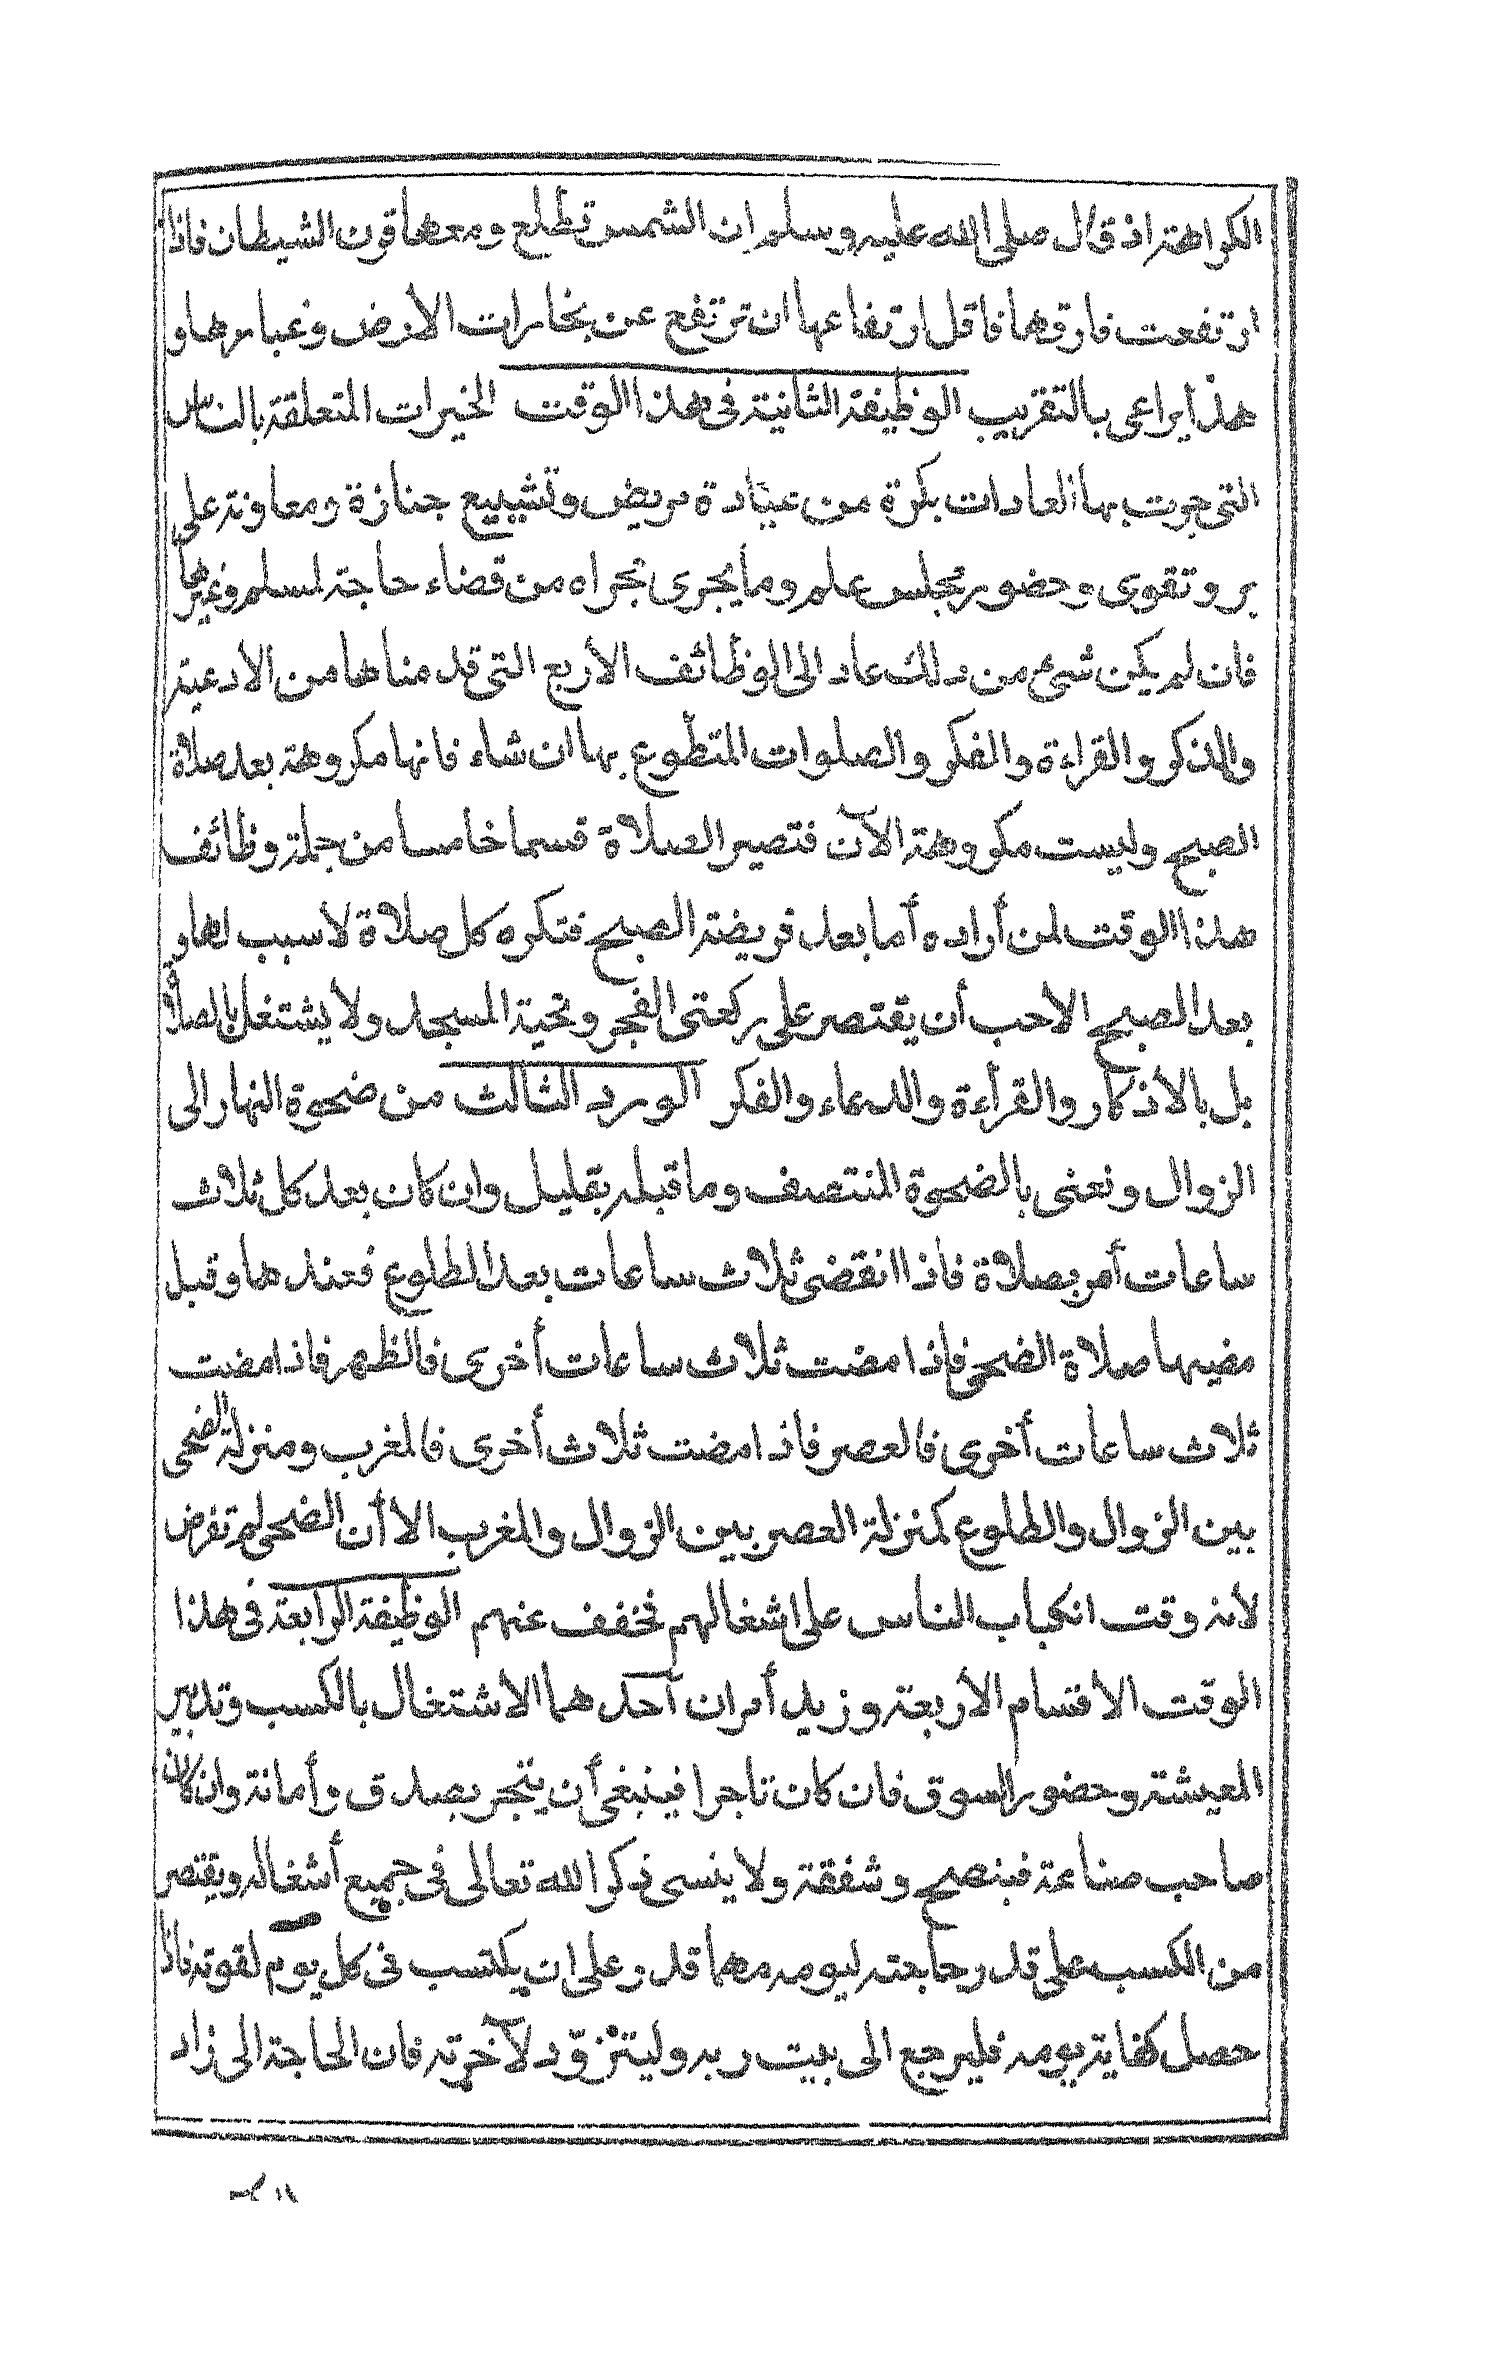 الكراهة اذ قال صلى الله عليه وسلم ان الشمس تطلع ومعها قرن الشيطان فاذا
ارتفعت فارقها فاقل ارتفاعها ان ترتفع عن بخارات الأرض وغبارها و
هذا يراعى بالتقريب الوظيفة الثانية فى هذا الوقت الخيرات المتعلقة بالناس
التى جرت بها العادات بكرة من عيادة مريض وتشييع جنازة ومعاونة على
بر وتقوى وحضور مجلس علم وما يجرى مجراه من قضاء حاجة لمسلم وغيرها
فان لم يكن شئ من ذلك عاد الى الوظائف الأربع التى قدمناها من الادعية
والذكر والقراءة والفكر والصلوات المتطوع بها ان شاء فانها مكروهة بعد صلاة
الصبح وليست مكروهة الآن فتصير الصلاة قسما خامسا من جملة وظائف
هذا الوقت لمن أراده أما بعد فريضة الصبح فتكره كل صلاة لا سبب لها و
بعد الصبح الاحب أن يقتصر على ركعتى الفجر وتحية المسجد ولا يشتغل بالصلاة
بل بالأذكار والقرأءة والدعاء والفكر الورد الثالث من ضحوة النهار الى
الزوال ونعنى بالضحوة المنتصف وما قبله بقليل وان كان بعد كل ثلاث
ساعات أمر بصلاة فاذا انقضى ثلاث ساعات بعد الطلوع فعندها وقبل
مضيها صلاة الضحى فاذا مضت ثلاث ساعات أخرى فالظهر فاذا مضت
ثلاث ساعات أخرى فالعصر فاذا مضت ثلاث أخرى فالمغرب ومنزلة الضحى
بين الزوال والطلوع كمنزلة العصر بين الزوال والمغرب الا أن الضحى لم تفرض
لأنه وقت انكباب الناس على اشغالهم فخفف عنهم الوظيفة الرابعة فى هذا
الوقت الاقسام الأربعة وزيد أمران أحدهما الاشتغال بالكسب وتدبير
المعيشة وحضور السوق فان كان تاجرا فينبغى أن يتجر بصدق وأمانة وان كان
صاحب صناعة فبنصح وشفقة ولا ينسى ذكر الله تعالى فى جميع أشغاله ويقتصر
من الكسب على قدر حاجته ليومه مهما قدر على ان يكتسب فى كل يوم لقوته فاذا
حصل كفاية يومه فليرجع الى بيت ربه وليتزوّد لآخرته فان الحاجة الى زاد